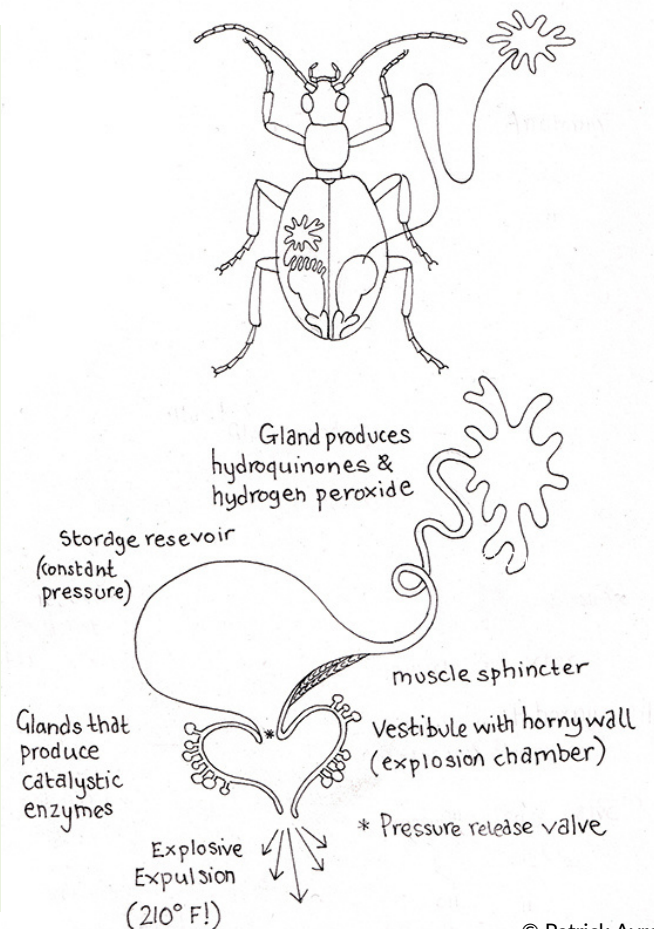 Gland produces
hydroquinones &
hydrogen peroxide
Storage resevoir
(constant
pressure)
muscle sphincter
Glands that
produce
catalystic
enzymes
Vestibule with horny wall
(explosion chamber)
*
* Pressure release valve
Explosive
Expulsion
(210° F!)
© Patrick